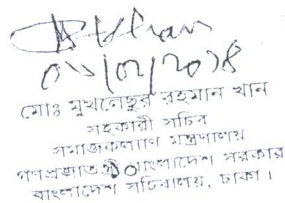 ০১/০২/২০১৪
মোঃ মুখলেছুর রহমান খান
সহকারী সচিব
সমাজকল্যাণ মন্ত্রণালয়
গণপ্রজাতন্ত্রী বাংলাদেশ সরকার
বাংলাদেশ সচিবালয়, ঢাকা।